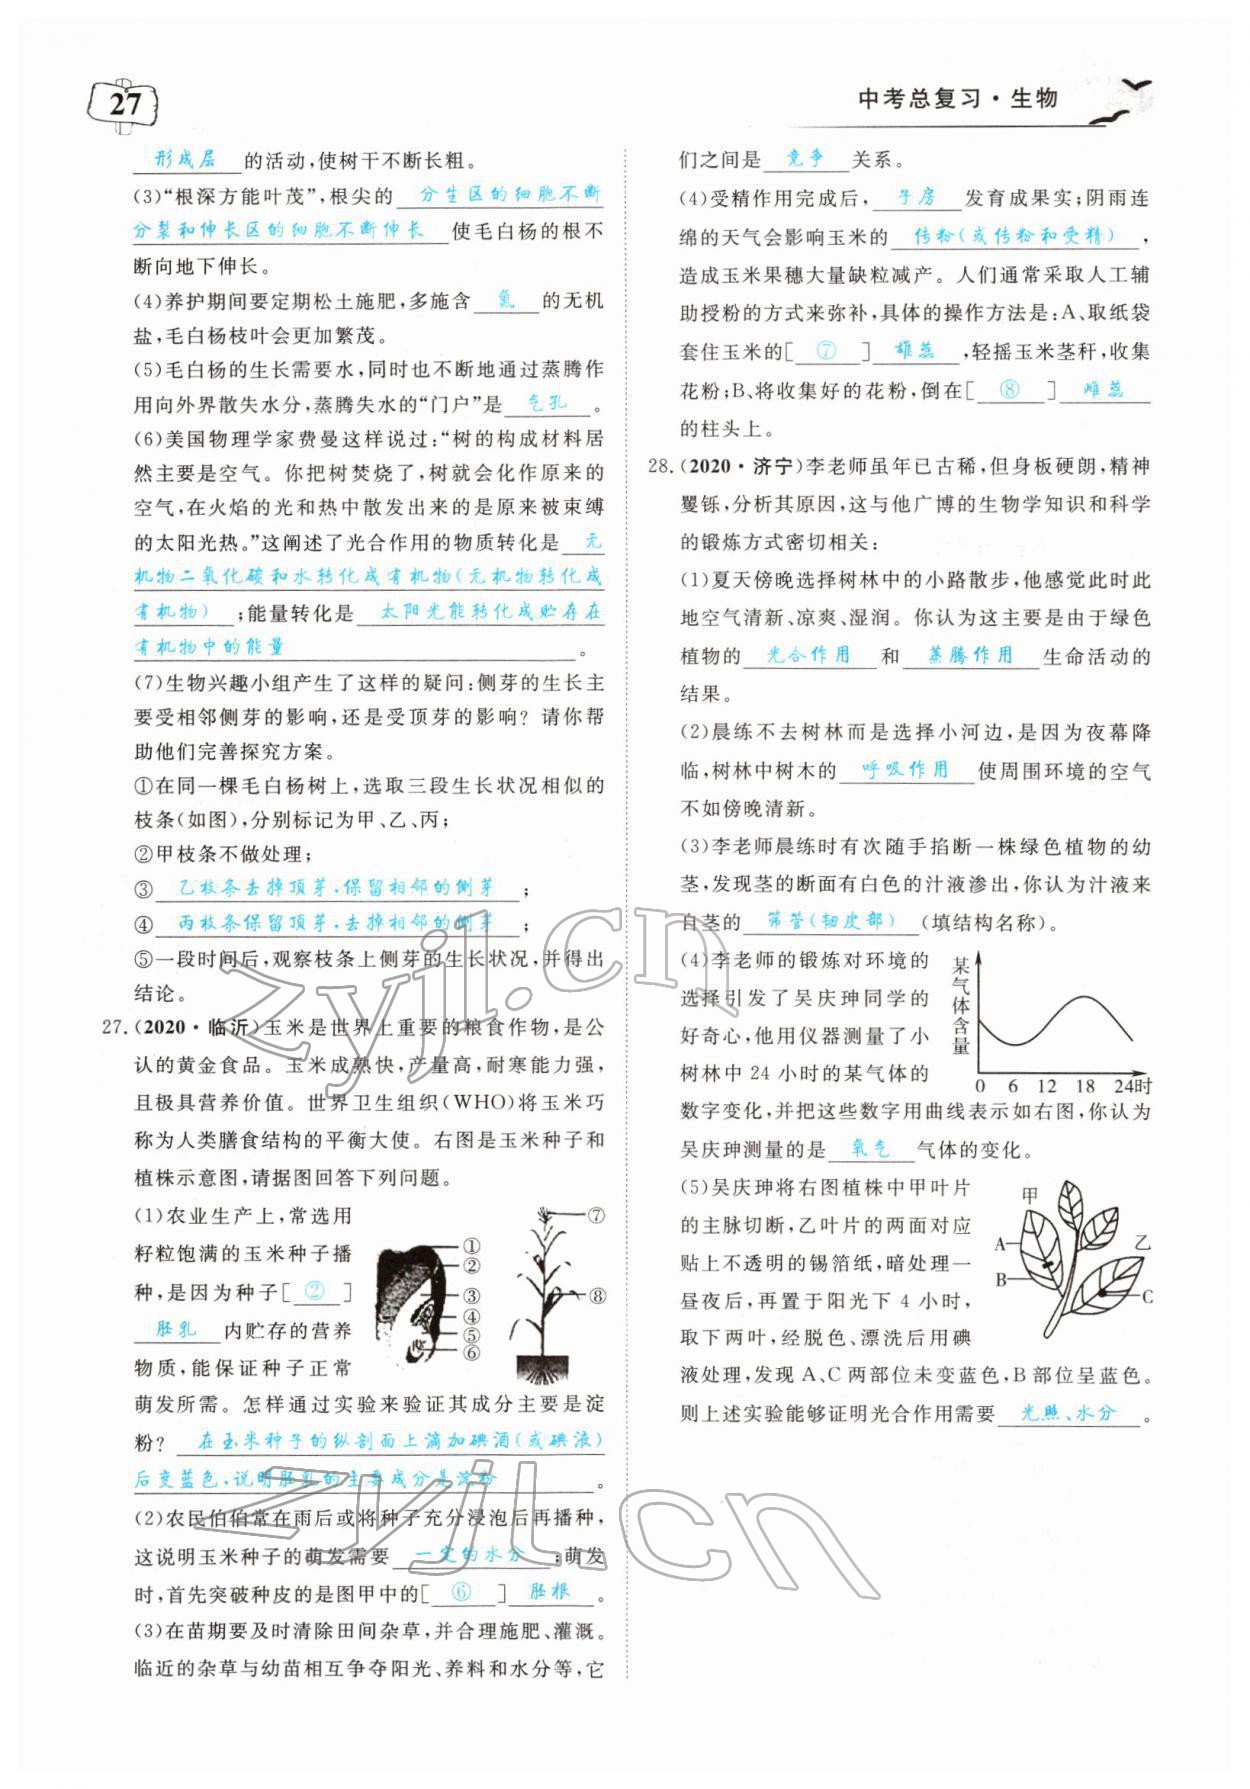 27
中考总复习·生物
形成层 的活动,使树干不断长粗。
(3)“根深方能叶茂”,根尖的 分生区的细胞不断
分裂和伸长区的细胞不断伸长 使毛白杨的根不
断向地下伸长。
(4)养护期间要定期松土施肥,多施含 氮 的无机
盐,毛白杨枝叶会更加繁茂。
(5)毛白杨的生长需要水,同时也不断地通过蒸腾作
用向外界散失水分,蒸腾失水的“门户”是 气孔 。
(6)美国物理学家费曼这样说过:“树的构成材料居
然主要是空气。你把树焚烧了,树就会化作原来的
空气,在火焰的光和热中散发出来的是原来被束缚
的太阳光热。”这阐述了光合作用的物质转化是 无
机物二氧化碳和水转化成有机物(无机物转化成
有机物) ;能量转化是 太阳光能转化成贮存在
有机物中的能量 。
(7)生物兴趣小组产生了这样的疑问:侧芽的生长主
要受相邻侧芽的影响,还是受顶芽的影响?请你帮
助他们完善探究方案。
①在同一棵毛白杨树上,选取三段生长状况相似的
枝条(如图),分别标记为甲、乙、丙;
②甲枝条不做处理;
③ 乙枝条去掉顶芽,保留相邻的侧芽 ;
④ 丙枝条保留顶芽,去掉相邻的侧芽 ;
⑤一段时间后,观察枝条上侧芽的生长状况,并得出
结论。
27.(2020·临沂)玉米是世界上重要的粮食作物,是公
认的黄金食品。玉米成熟快,产量高,耐寒能力强,
且极具营养价值。世界卫生组织(WHO)将玉米巧
称为人类膳食结构的平衡大使。右图是玉米种子和
植株示意图,请据图回答下列问题。
(1)农业生产上,常选用
籽粒饱满的玉米种子播
种,是因为种子[ ② ]
胚乳 内贮存的营养
物质,能保证种子正常
萌发所需。怎样通过实验来验证其成分主要是淀
粉? 在玉米种子的纵剖面上滴加碘酒(或碘液)
后变蓝色,说明胚乳的主要成分是淀粉 。
①
②
③
④
⑤
⑥
⑦
⑧
(2)农民伯伯常在雨后或将种子充分浸泡后再播种,
这说明玉米种子的萌发需要 一定的水分 ;萌发
时,首先突破种皮的是图甲中的[ ⑥ ] 胚根 。
(3)在苗期要及时清除田间杂草,并合理施肥、灌溉。
临近的杂草与幼苗相互争夺阳光、养料和水分等,它
们之间是 竞争 关系。
(4)受精作用完成后, 子房 发育成果实;阴雨连
绵的天气会影响玉米的 传粉(或传粉和受精) ,
造成玉米果穗大量缺粒减产。人们通常采取人工辅
助授粉的方式来弥补,具体的操作方法是:A、取纸袋
套住玉米的[ ⑦ ] 雄蕊 ,轻摇玉米茎秆,收集
花粉;B、将收集好的花粉,倒在[ ⑧ ] 雌蕊
的柱头上。
28.(2020·济宁)李老师虽年已古稀,但身板硬朗,精神
矍铄,分析其原因,这与他广博的生物学知识和科学
的锻炼方式密切相关:
(1)夏天傍晚选择树林中的小路散步,他感觉此时此
地空气清新、凉爽、湿润。你认为这主要是由于绿色
植物的 光合作用 和 蒸腾作用 生命活动的
结果。
(2)晨练不去树林而是选择小河边,是因为夜幕降
临,树林中树木的 呼吸作用 使周围环境的空气
不如傍晚清新。
(3)李老师晨练时有次随手掐断一株绿色植物的幼
茎,发现茎的断面有白色的汁液渗出,你认为汁液来
自茎的 筛管(韧皮部) (填结构名称)。
(4)李老师的锻炼对环境的
选择引发了吴庆珅同学的
好奇心,他用仪器测量了小
树林中24小时的某气体的
数字变化,并把这些数字用曲线表示如右图,你认为
吴庆珅测量的是 氧气 气体的变化。
某气体含量
0 6 12 18 24时
(5)吴庆珅将右图植株中甲叶片
的主脉切断,乙叶片的两面对应
贴上不透明的锡箔纸,暗处理一
昼夜后,再置于阳光下4小时,
取下两叶,经脱色、漂洗后用碘
液处理,发现A、C两部位未变蓝色,B部位呈蓝色。
则上述实验能够证明光合作用需要 光照、水分 。
甲
乙
A
B
C
zyjl.cn
zyjl.cn